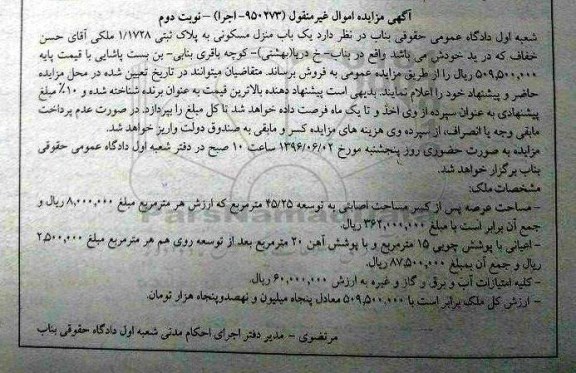 آگهی مزایده اموال غیرمنقول (۹۵۰۲۷۳- اجرا) –نوبت دوم
شعبه اول دادگاه عمومی حقوقی بناب در نظر دارد یک باب منزل مسکونی به پلاک ثبتی ۱/۱۷۲۸ ملکی آقای حسن
خفاف که در ید خودش می باشد واقع در بناب-خ دریا(بهشتی)- کوچه باقری بنابی- بن بست پاشایی با قیمت پایه
۵۰۹,۵۰۰,۰۰۰ ریال را از طریق مزایده عمومی به فروش برساند. متقاضیان میتوانند در تاریخ تعیین شده در محل مزایده
حاضر و پیشنهاد خود را اعلام نمایند. بدیهی است پیشنهاد دهنده بالاترین قیمت به عنوان برنده شناخته شده و ۱۰٪ مبلغ
پیشنهادی به عنوان سپرده از وی اخذ و تا یک ماه فرصت داده خواهد شد تا کل مبلغ را بپردازد. در صورت عدم پرداخت
مابقی وجه یا انصراف، از سپرده وی هزینه های مزایده کسر و مابقی به صندوق دولت واریز خواهد شد.
مزایده به صورت حضوری روز پنجشنبه مورخ ۱۳۹۶/۰۶/۰۲ ساعت ۱۰ صبح در دفتر شعبه اول دادگاه عمومی حقوقی
بناب برگزار خواهد شد.
مشخصات ملک:
- مساحت عرصه پس از کسر مساحت اصابتی به توسعه ۴۵/۲۵ مترمربع که ارزش هر مترمربع مبلغ ۸,۰۰۰,۰۰۰ ریال و
جمع آن برابر است با مبلغ ۳۶۲,۰۰۰,۰۰۰ ریال.
- اعیانی با پوشش چوبی ۱۵ مترمربع و با پوشش آهن ۲۰ مترمربع بعد از توسعه روی هم هر مترمربع مبلغ ۲,۵۰۰,۰۰۰
ریال و جمع آن بمبلغ ۸۷,۵۰۰,۰۰۰ ریال.
- کلیه امتیازات آب و برق و گاز و غیره به ارزش ۶۰,۰۰۰,۰۰۰ ریال.
- ارزش کل ملک برابر است با ۵۰۹,۵۰۰,۰۰۰ معادل پنجاه میلیون و نهصدوپنجاه هزار تومان.
مرتضوی - مدیر دفتر اجرای احکام مدنی شعبه اول دادگاه حقوقی بناب